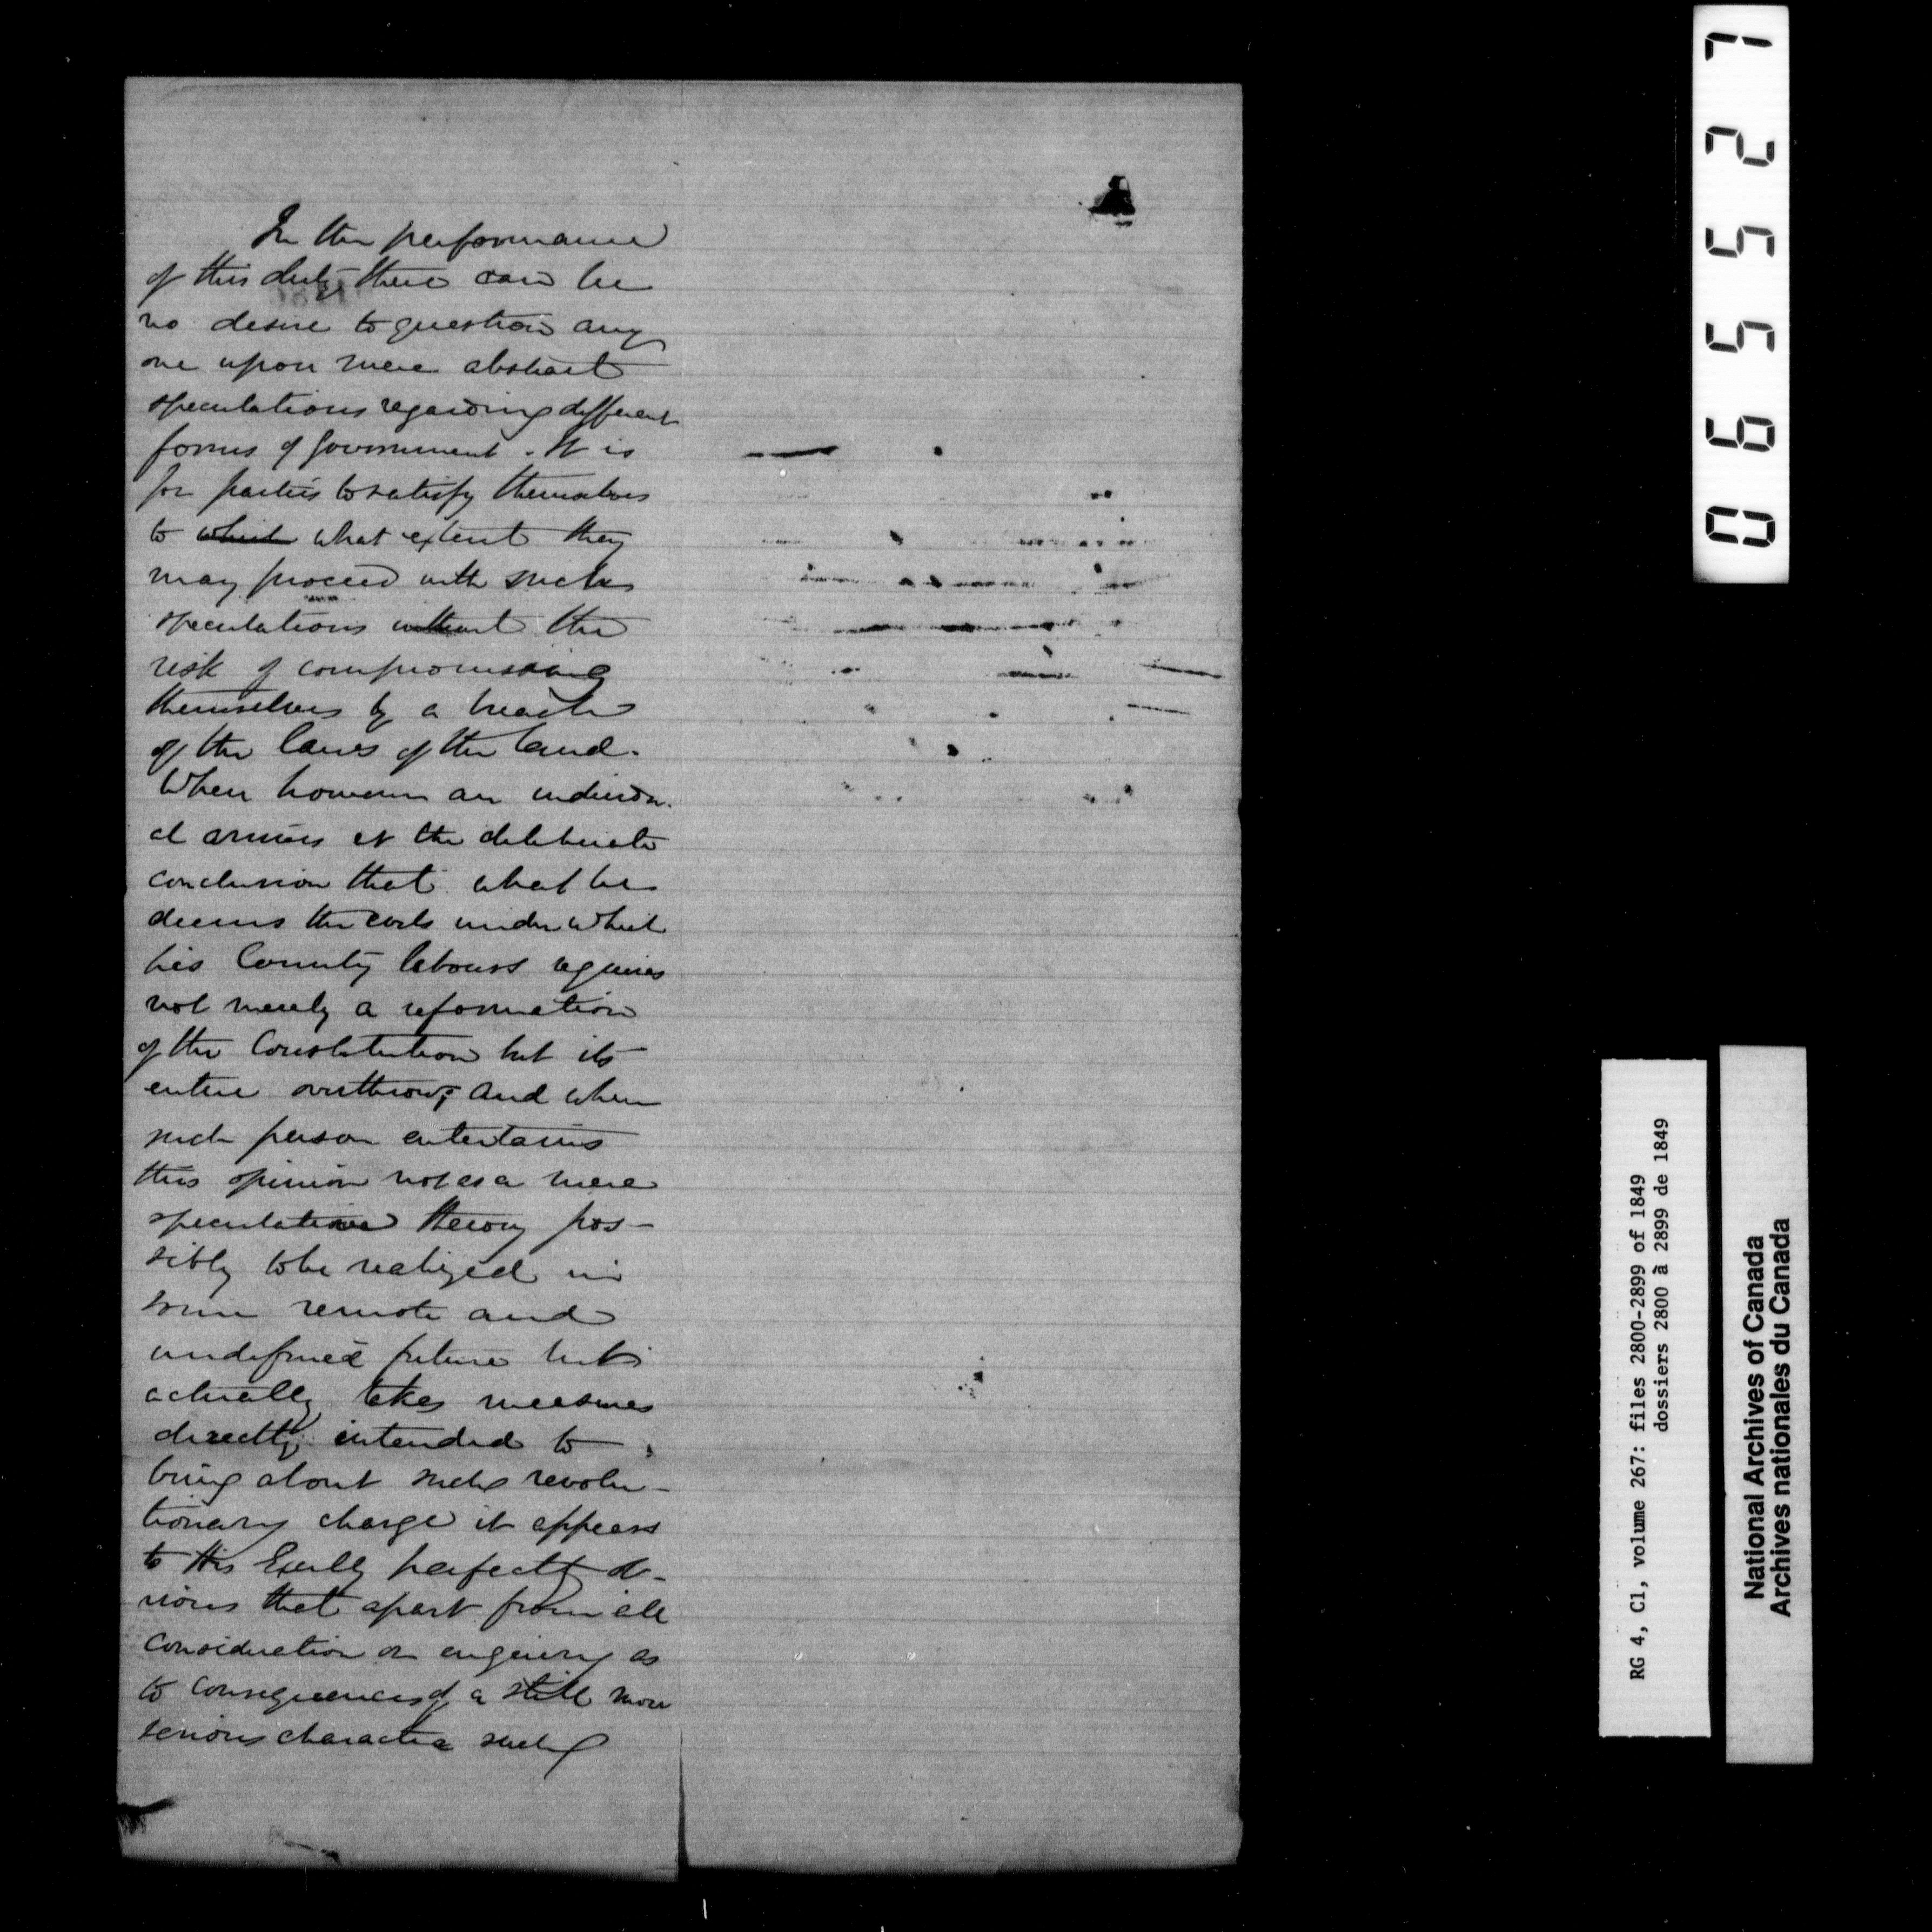 In the performance
of this duty there can be
no desire to question any
one upon mere abstract
speculations regarding different
forms of Government. It is
for parties to satisfy themselves
to which what extent they
may proceed with such
speculations without the
risk of compromising
themselves by a breach
of the laws of the land.
When however an individu-
al arrives at the deliberate
conclusion that what he
deems the evils under which
his Country labours requires
not merely a reformation
of the Constitution but its
entire overthrow; and when
such person entertains
this opinion not as a mere
speculative theory pos-
sibly to be realized in
some remote and
undefined future but
actually takes measures
directly intended to
bring about such revolu-
tionary change it appears
to His Excelly perfectly ob-
vious that apart from all
consideration or enquiry as
to consequences of a still more
serious character such
065527
RG 4, C1, volume 267: files 2800-2899 of 1849
dossiers 2800 à 2899 de 1849
National Archives of Canada
Archives nationales du Canada